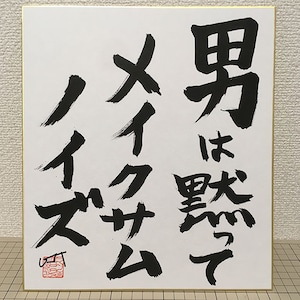 男は黙って
メイクサム
ノイズ